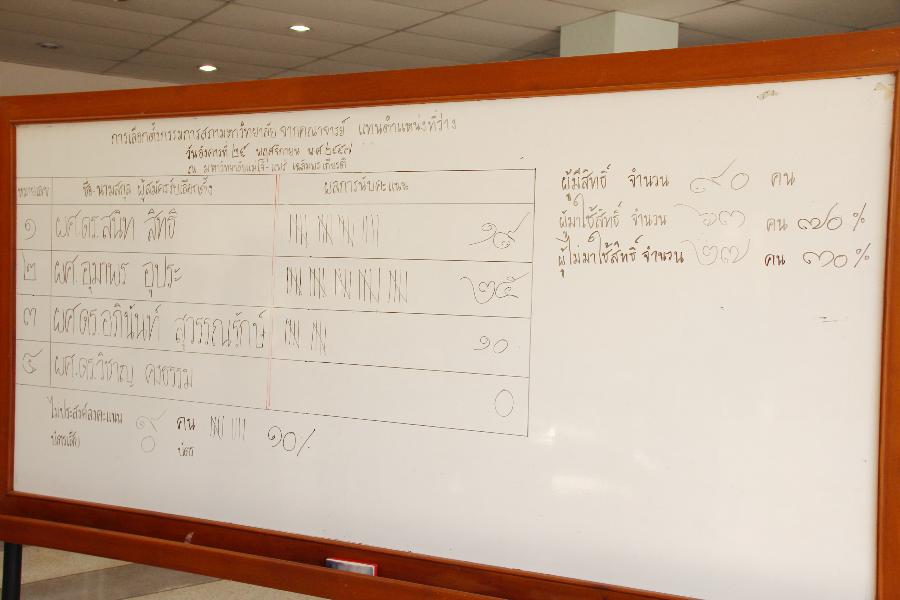 การเลือกตั้งกรรมการสภามหาวิทยาลัย จากคณาจารย์ แทนตำแหน่งที่ว่าง
วันอังคารที่ ๒๕ พฤศจิกายน พ.ศ ๒๕๕๗
ณ มหาวิทยาลัยแม่โจ้-แพร่ เฉลิมพระเกียรติ
หมายเลข ชื่อ-นามสกุล ผู้สมัครรับเลือกตั้ง ผลการนับคะแนน
๑ ผศ.ดร.สนิท สิทธิ ๑๙
๒ ผศ.อุมาพร อุประ ๒๕
๓ ผศ.ดร.อภินันท์ สุวรรณรักษ์ ๑๐
๔ ผศ.ดร.วิชาญ คงธรรม ๐
ไม่ประสงค์ลงคะแนน ๙ คน ๑๐%
บัตรเสีย ๐ บัตร
ผู้มีสิทธิ์ จำนวน ๙๐ คน
ผู้มาใช้สิทธิ์ จำนวน ๖๓ คน ๗๐%
ผู้ไม่มาใช้สิทธิ์ จำนวน ๒๗ คน ๓๐%